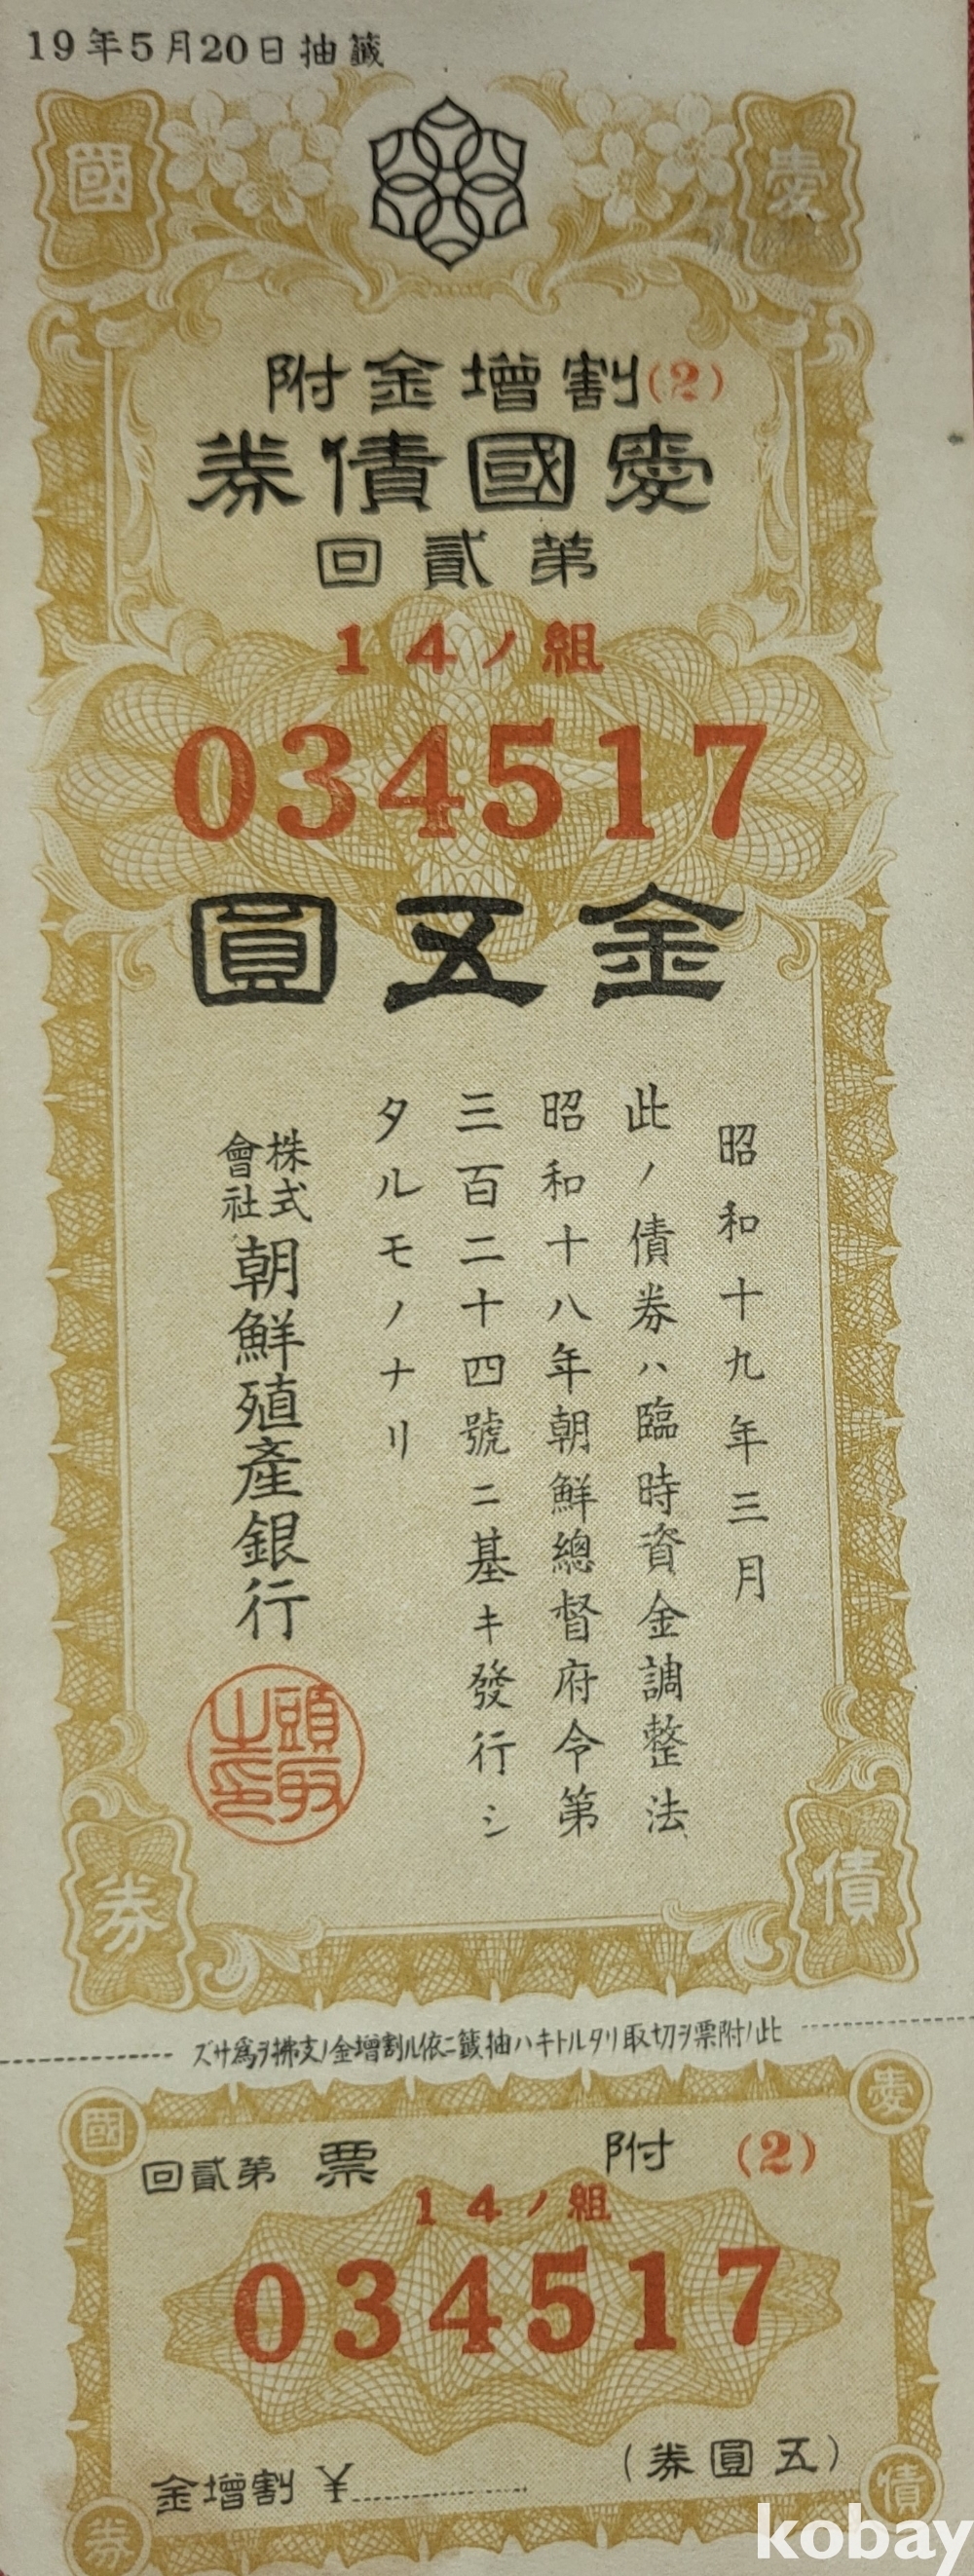 19年5月20日抽籤
愛國
割增金附(2)
愛國債券
第貳回
14ノ組
034517
金五圓
昭和十九年三月
此ノ債券ハ臨時資金調整法
昭和十八年朝鮮總督府令第
三百二十四號ニ基キ發行シ
タルモノナリ
株式會社朝鮮殖產銀行
頭取之印
債券
此ノ附票ヲ切取リタルトキハ抽籤ニ依ル割增金ノ支拂ヲ爲サズ
愛國
附票 第貳回 (2)
14ノ組
034517
(五圓券)
割增金 ¥
債券
kobay